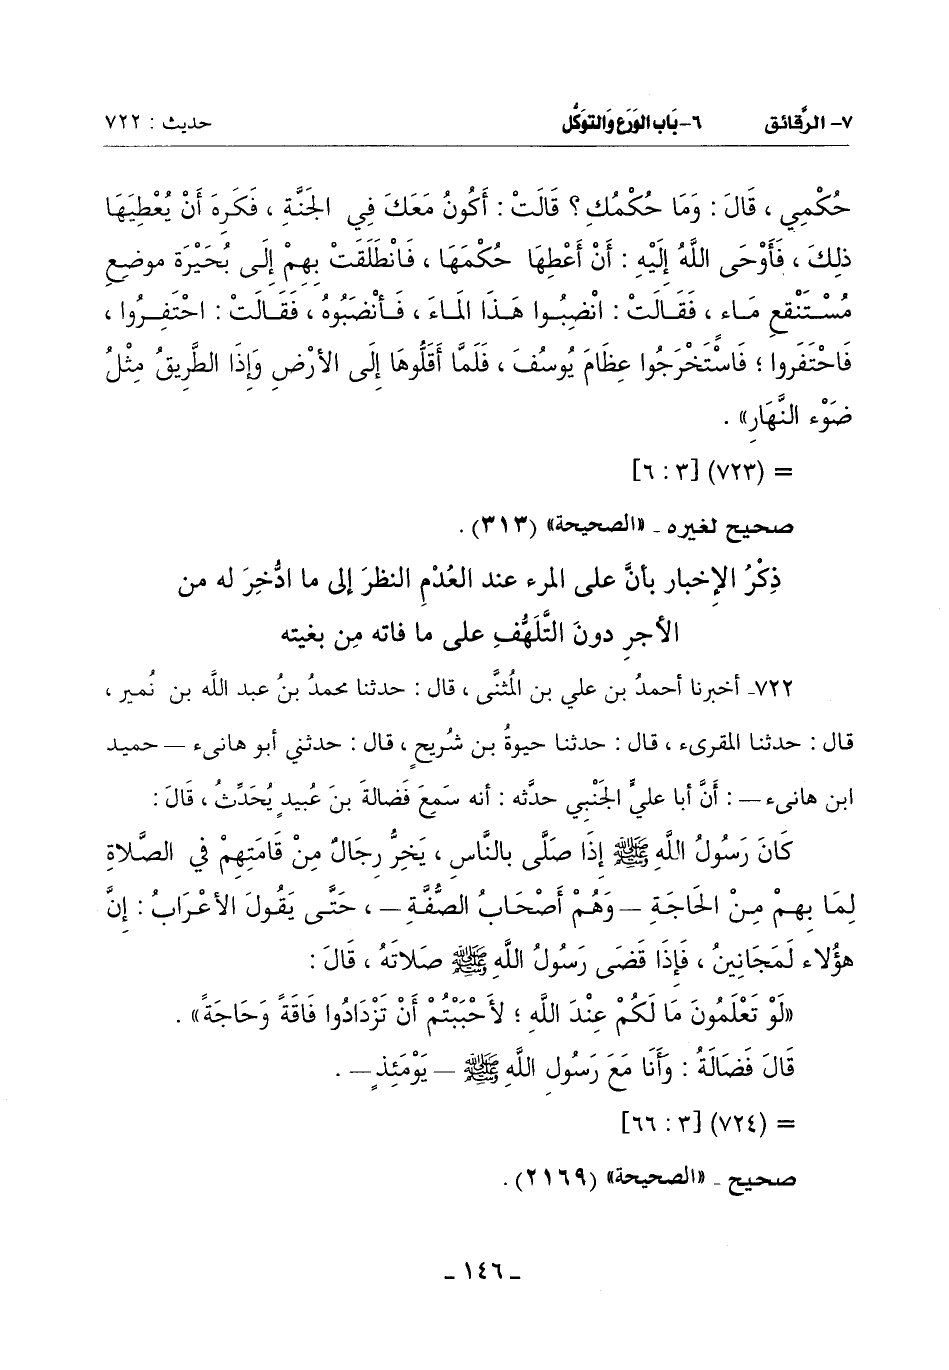 ٧- الرَّقائق ٦- بَاب الوَرَع وَالتوَكُّل حديث : ٧٢٢
حُكْمِي ، قَالَ : وَمَا حُكْمُكِ ؟ قَالَتْ : أَكُونُ مَعَكَ فِي الجَنَّةِ ، فَكَرِهَ أَنْ يُعْطِيَهَا
ذلِكَ ، فَأَوْحَى اللَّهُ إِلَيْهِ : أَنْ أَعْطِهَا حُكْمَهَا ، فَانْطَلَقَتْ بِهِمْ إِلَى بُحَيْرَة موضعِ
مُسْتَنْقعِ مَاء ، فَقَالَتْ : انْضِبُوا هَذَا المَاءَ ، فَأَنْضَبُوهُ ، فَقَالَتْ : احْتَفِرُوا ،
فَاحْتَفَروا ؛ فَاسْتَخْرَجُوا عِظَامَ يُوسُفَ ، فَلَمَّا أَقَلُّوهَا إِلَى الأَرْضِ وَإِذَا الطَّرِيقُ مِثْلُ
ضَوْء النَّهَارِ» .
= (٧٢٣) [٣ : ٦]
صحيح لغيره ـ «الصحيحة» (٣١٣) .
ذِكْرُ الإخبار بأنَّ على المرء عند العُدْمِ النظرَ إلى ما ادُّخِرَ له من
الأجرِ دونَ التَّلَهُّفِ على ما فاته مِن بغيته
٧٢٢ـ أخبرنا أحمدُ بن علي بن المُثنَّى ، قال : حدثنا محمدُ بنُ عبد اللَّه بن نُمير ،
قال : حدثنا المقرىء ، قال : حدثنا حيوةُ بن شُريحٍ ، قال : حدثني أبو هانىء — حميد
ابن هانىء — : أنَّ أبا عليٍّ الجَنْبي حدَّثه : أنه سَمِعَ فَضالةَ بنَ عُبيدٍ يُحَدِّثُ ، قَالَ :
كَانَ رَسُولُ اللَّهِ ﷺ إِذَا صَلَّى بالنَّاسِ ، يَخِرُّ رِجَالٌ مِنْ قَامَتِهِمْ فِي الصَّلاةِ
لِمَا بِهِمْ مِنْ الحَاجَةِ — وَهُمْ أَصْحَابُ الصُّفَّةِ — ، حَتَّى يَقُولَ الأعْرَابُ : إِنَّ
هؤُلاء لَمَجَانِينُ ، فَإِذَا قَضَى رَسُولُ اللَّهِ ﷺ صَلاتَهُ ، قَالَ :
«لَوْ تَعْلَمُونَ مَا لَكُمْ عِنْدَ اللَّهِ ؛ لأَحْبَبْتُمْ أَنْ تَزْدَادُوا فَاقَةً وَحَاجَةً» .
قَالَ فَضَالَةُ : وَأَنَا مَعَ رَسُولِ اللَّهِ ﷺ — يَوْمَئِذٍ — .
= (٧٢٤) [٣ : ٦٦]
صحيح ـ «الصحيحة» (٢١٦٩) .
ـ ١٤٦ ـ